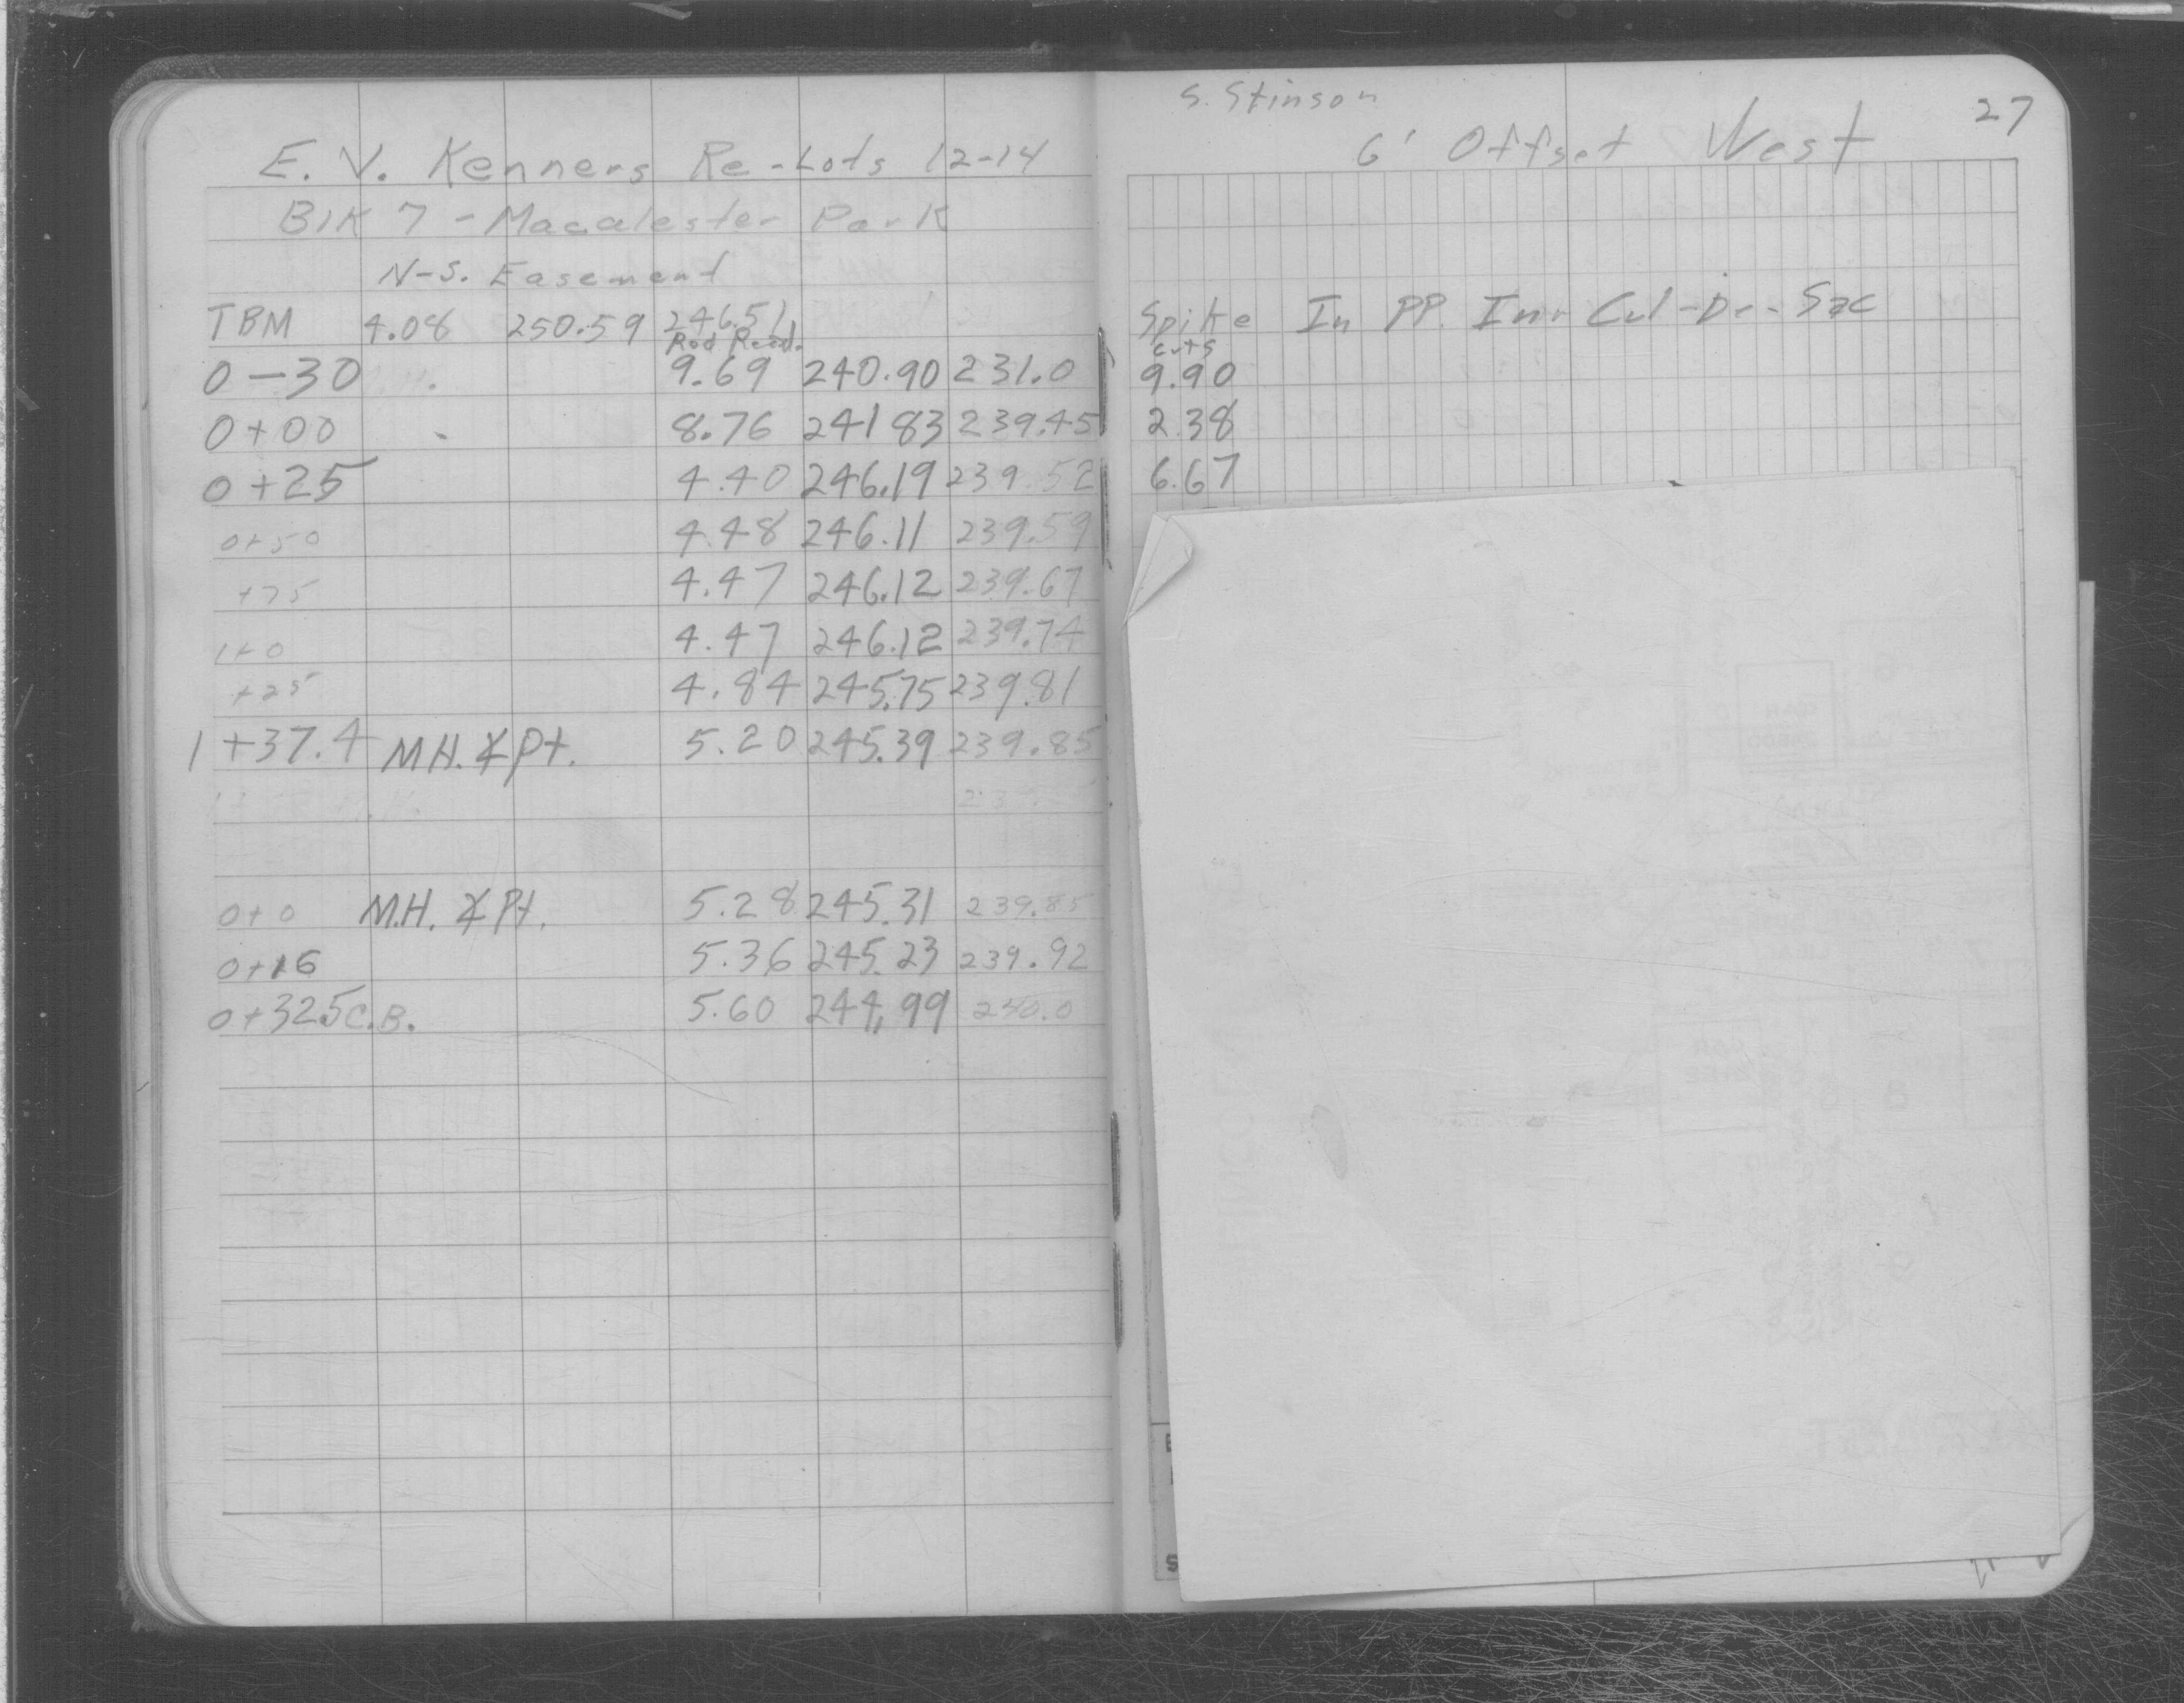 E. V. Kenners Re-Lots 12-14
Blk 7 - Macalester Park
N-S. Easement
TBM 4.08 250.59 246.51
Rod Read.
0-30 9.69 240.90 231.0
0+00 8.76 241 83 239.45
0+25 4.40 246.19 239.52
0+50 4.48 246.11 239.59
+75 4.47 246.12 239.67
1+0 4.47 246.12 239.74
+25 4.84 245.75 239.81
1+37.4 M.H. ∡ Pt. 5.20 245.39 239.85
0+0 M.H. ∡ Pt. 5.28 245.31 239.85
0+16 5.36 245.23 239.92
0+32.5 C.B. 5.60 244.99 240.0
S. Stinson
27
6' Offset West
Spike In PP. In Cul-De-Sac
cuts
9.90
2.38
6.67